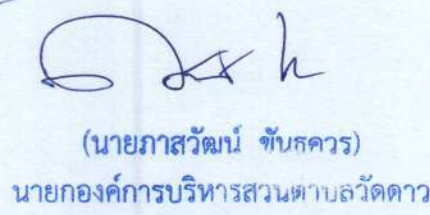 (นายภาสวัฒน์ ขันธควร)
นายกองค์การบริหารส่วนตำบลวัดดาว